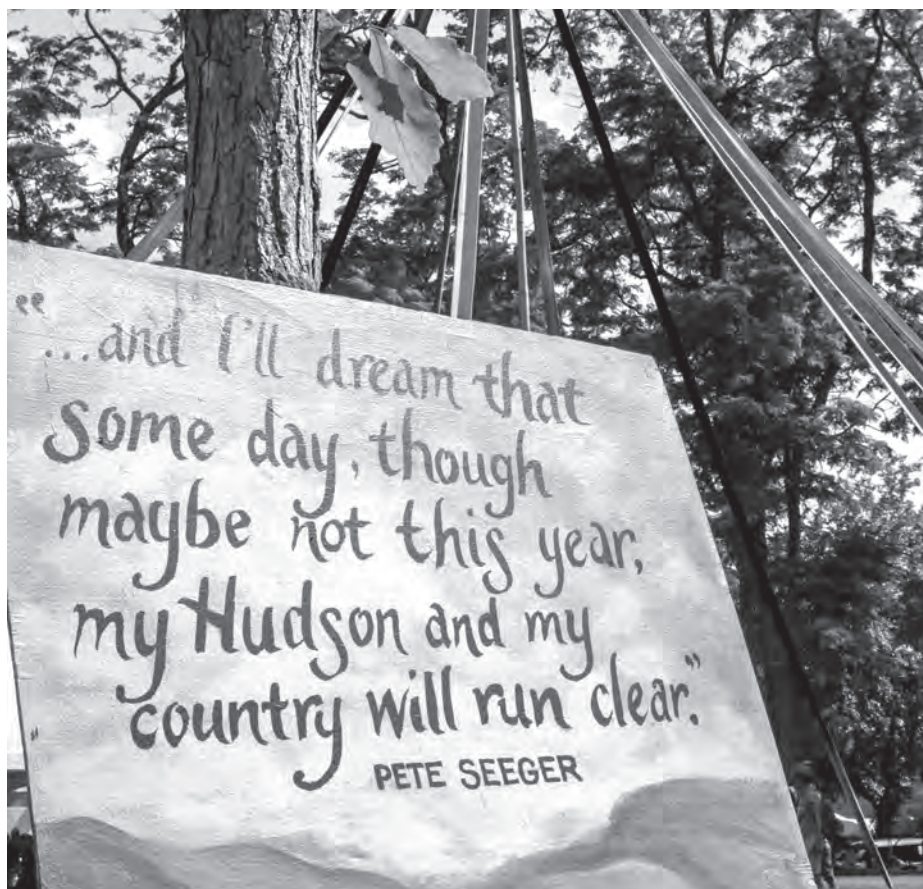 “...and I'll dream that
some day, though
maybe not this year,
my Hudson and my
country will run clear.”
PETE SEEGER